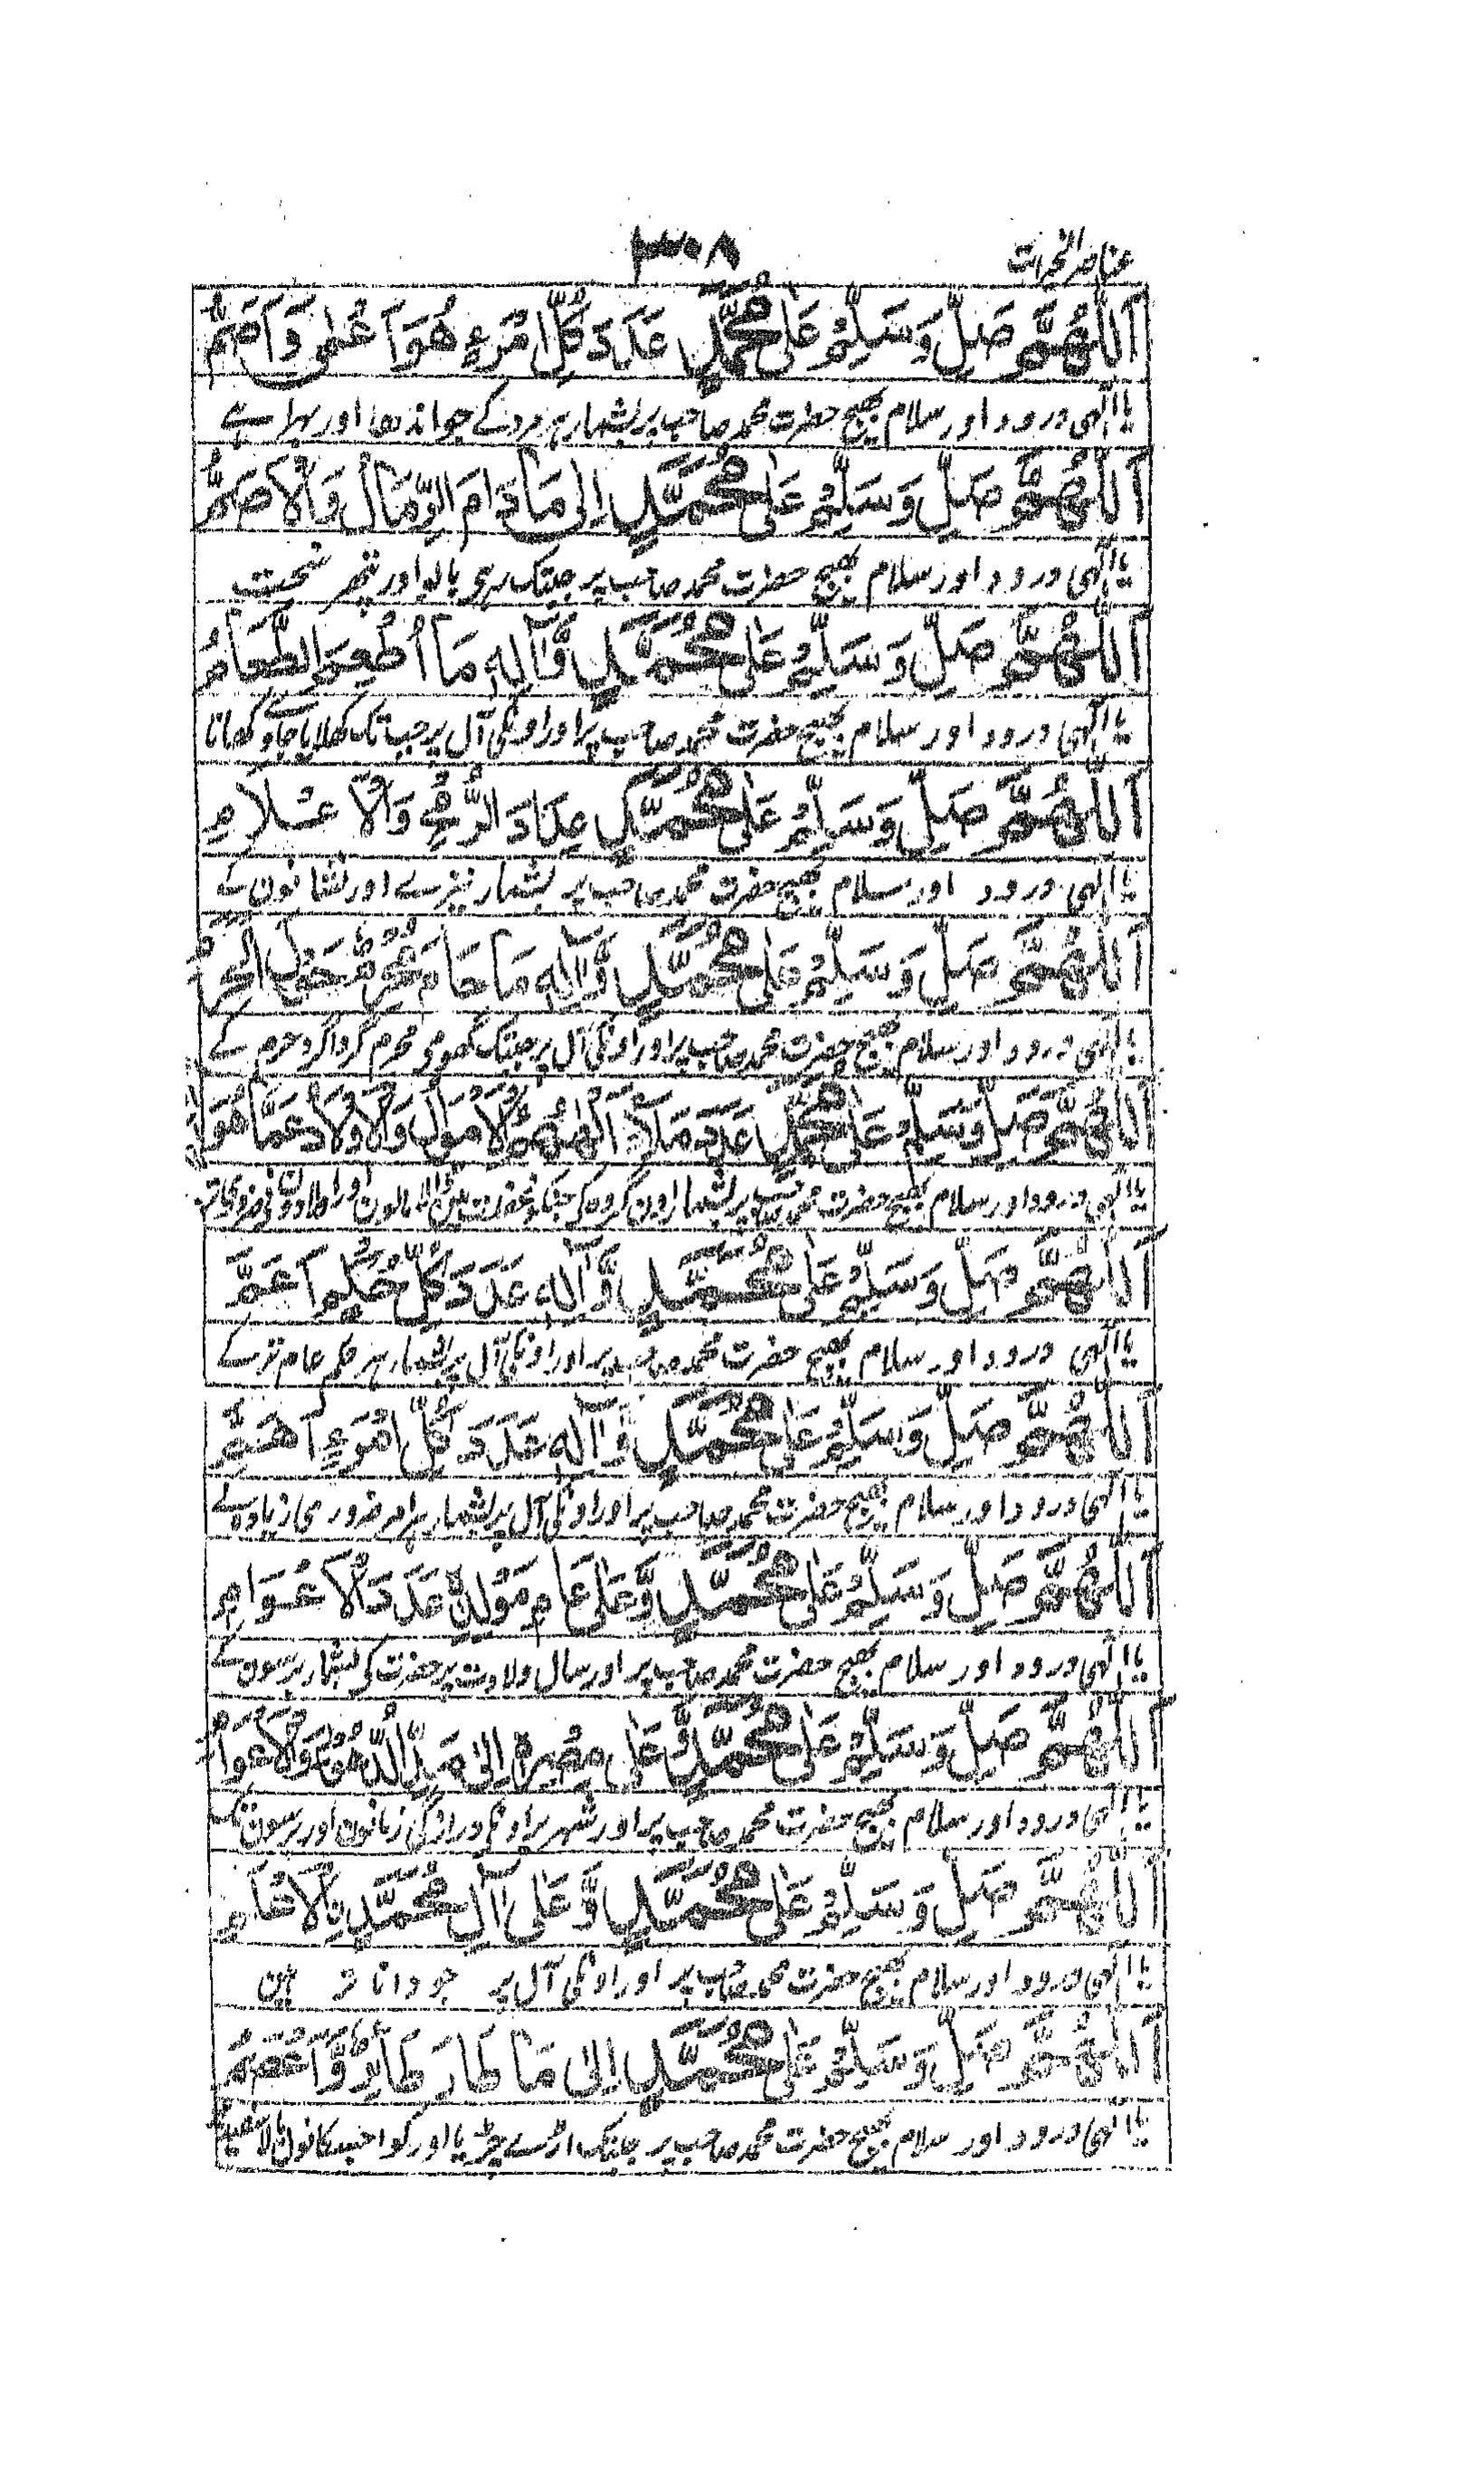 عناصر الخیرات
۳۰۸
اَللّٰهُمَّ صَلِّ وَسَلِّمْ عَلٰى مُحَمَّدٍ عَدَدَ كُلِّ امْرَءٍ هُوَ اَعْمٰى وَاَصَمُّ
یا الٰہی درود اور سلام بھیج حضرت محمد صاحب پر بشمار ہر مرد کے جو اندھا اور بہرا ہے
اَللّٰهُمَّ صَلِّ وَسَلِّمْ عَلٰى مُحَمَّدٍ اِلٰى مَا دَامَ الرِّمَالُ وَالْاَصَمُّ
یا الٰہی درود اور سلام بھیج حضرت محمد صاحب پر جبتک رہی بالو اور پتھر سخت
اَللّٰهُمَّ صَلِّ وَسَلِّمْ عَلٰى مُحَمَّدٍ وَّاٰلِهٖ مَا اُطْعِمَ الطَّعَامُ
یا الٰہی درود اور سلام بھیج حضرت محمد صاحب پر اور اونکی آل پر جب تک کھلایا جاوے کھانا
اَللّٰهُمَّ صَلِّ وَسَلِّمْ عَلٰى مُحَمَّدٍ عِدَادَ الرُّمْحِ وَالْاَعْلَامِ
یا الٰہی درود اور سلام بھیج حضرت محمد صاحب پر بشمار نیزے اور نشانون کے
اَللّٰهُمَّ صَلِّ وَسَلِّمْ عَلٰى مُحَمَّدٍ وَّاٰلِهٖ مَا حَامَ مُحْرِمٌ حَوْلَ الْحَرَمِ
یا الٰہی درود اور سلام بھیج حضرت محمد صاحب پر اور اونکی آل پر جبتک گھومی محرم گرداگرد حرم کے
اَللّٰهُمَّ صَلِّ وَسَلِّمْ عَلٰى مُحَمَّدٍ عَدَدَ مَلَاءٍ اَلْهٰىهُمُ الْاَمْوَالُ وَالْاَوْلَادُ عَمَّا هُوَ
یا الٰہی درود اور سلام بھیج حضرت محمد صاحب پر بشمار اون گروہ کی جنکو غفلت مین ڈالا مالون اور اولادون نی
اَللّٰهُمَّ صَلِّ وَسَلِّمْ عَلٰى مُحَمَّدٍ وَّاٰلِهٖ عَدَدَ كُلِّ حُكْمٍ اَعَمَّ
یا الٰہی درود اور سلام بھیج حضرت محمد صاحب پر اور اونکی آل پر بشمار ہر حکم عام تر کے
اَللّٰهُمَّ صَلِّ وَسَلِّمْ عَلٰى مُحَمَّدٍ وَّاٰلِهٖ عَدَدَ كُلِّ اَمْرٍ اَهَمَّ
یا الٰہی درود اور سلام بھیج حضرت محمد صاحب پر اور اونکی آل پر بشمار ہر امر ضروری زیادہ کے
اَللّٰهُمَّ صَلِّ وَسَلِّمْ عَلٰى مُحَمَّدٍ وَّعَلٰى عَامِ مَوْلِدِهٖ عَدَدَ الْاَعْوَامِ
یا الٰہی درود اور سلام بھیج حضرت محمد صاحب پر اور سال ولادت پر حضرت کی بشمار برسون کے
اَللّٰهُمَّ صَلِّ وَسَلِّمْ عَلٰى مُحَمَّدٍ وَّعَلٰى مِصْرِهٖ اِلٰى مَدِّ الدُّهُوْرِ وَالْاَعْوَامِ
یا الٰہی درود اور سلام بھیج حضرت محمد صاحب پر اور شہر پر اونکے درازگی زمانون اور برسون تک
اَللّٰهُمَّ صَلِّ وَسَلِّمْ عَلٰى مُحَمَّدٍ وَّعَلٰى اٰلِ مُحَمَّدٍ
یا الٰہی درود اور سلام بھیج حضرت محمد صاحب پر اور اونکی آل پر جو دانا تر ہین
اَللّٰهُمَّ صَلِّ وَسَلِّمْ عَلٰى مُحَمَّدٍ اِلٰى مَا طَارَ طَائِرٌ وَّاَعْصَمُ
یا الٰہی درود اور سلام بھیج حضرت محمد صاحب پر جبتک اڑے چڑیا اور کوا